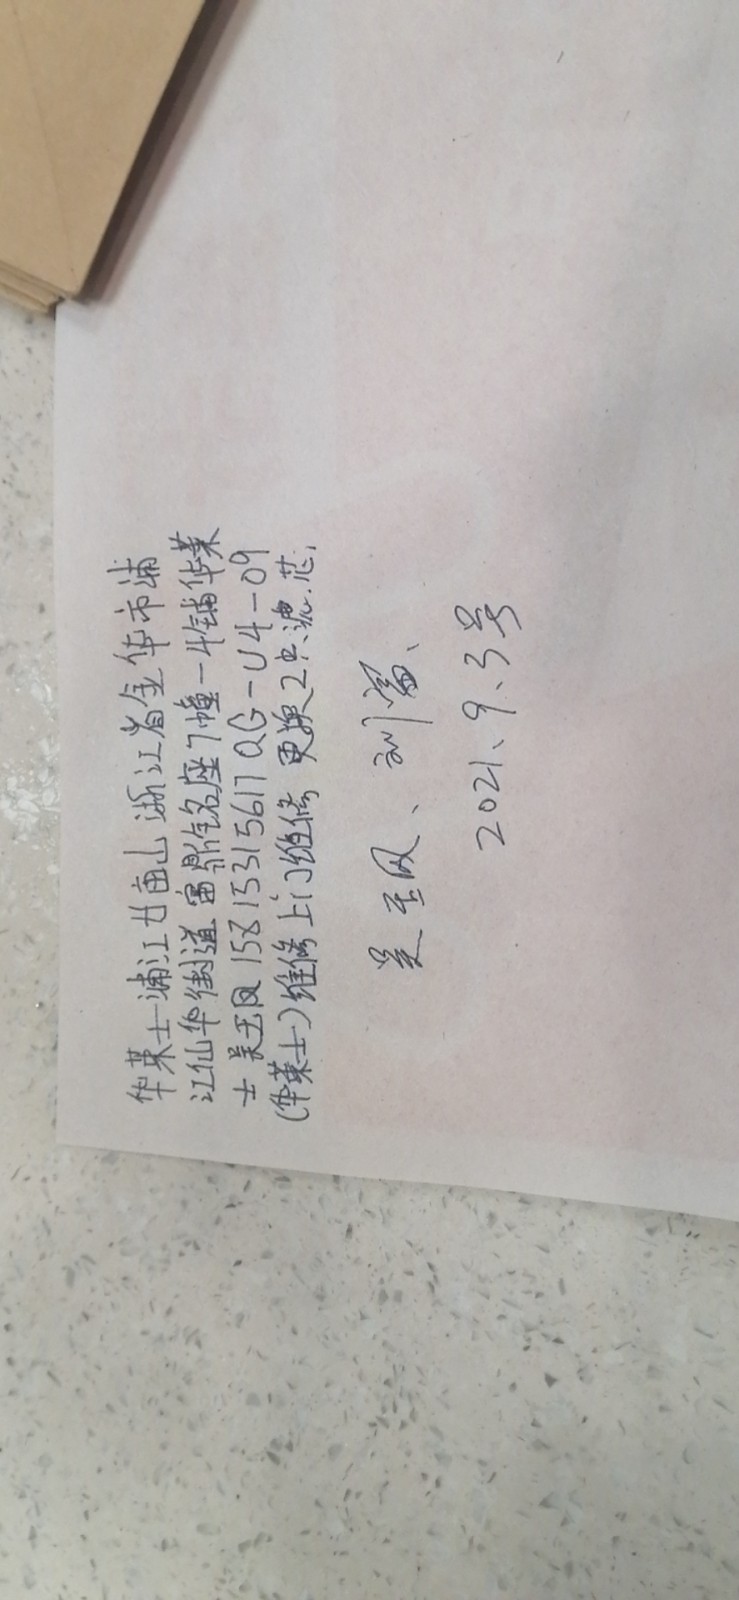 华莱士浦江廿亩山 浙江省金华市浦
江仙华街道富鼎名座7幢-4铺华莱
士 吴玉凤 15815315617 QG-U4-09
(华莱士)维修 上门维修 更换2只滤芯,
吴玉凤、刘富、
2021、9、3号